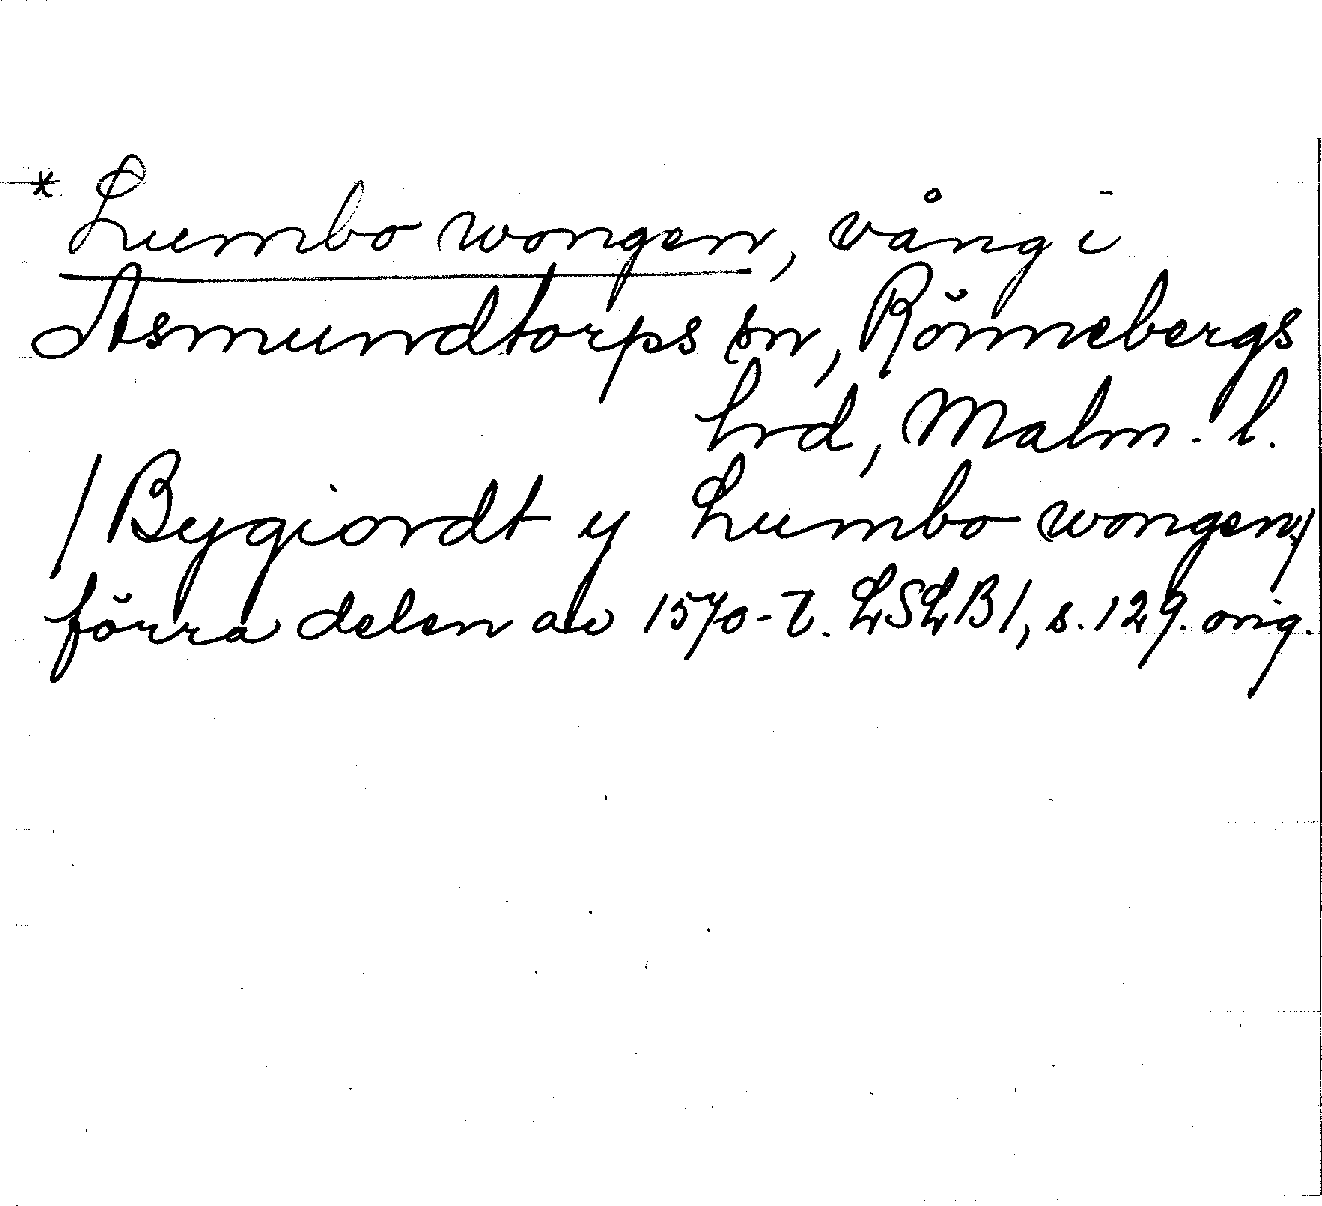 * Lumbo wongen, vång i
Asmundtorps sn, Rönnebergs
hrd, Malm. l.
/Bygiordt y Lumbo wongen/
förra delen av 1570-t. LSLB1, s. 129. orig.